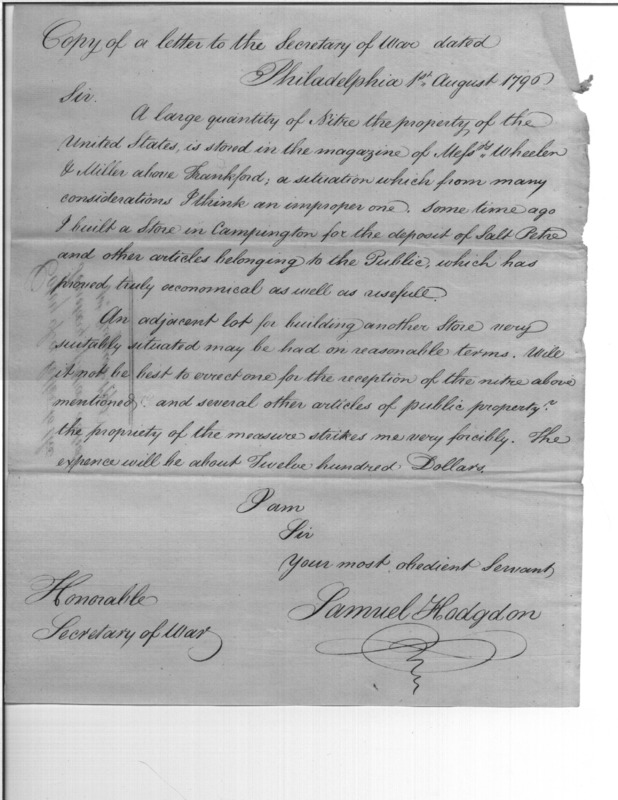 Copy of a letter to the Secretary of War dated
Philadelphia 1st. August 1796
Sir.
A large quantity of Nitre the property of the
United States, is stored in the magazine of Messrs. Wheelen
& Miller above Frankford; a situation which from many
considerations I think an improper one. Some time ago
I built a Store in Campington for the deposit of Salt Petre
and other articles belonging to the Public, which has
proved truly œconomical as well as usefull.
An adjacent lot for building another Store very
suitably situated may be had on reasonable terms. Will
it not be best to errect one for the reception of the nitre above
mentioned and several other articles of public property
the propriety of the measure strikes me very forcibly. The
expence will be about Twelve hundred Dollars.
I am
Sir
Your most obedient Servant
Samuel Hodgdon
Honorable
Secretary of War